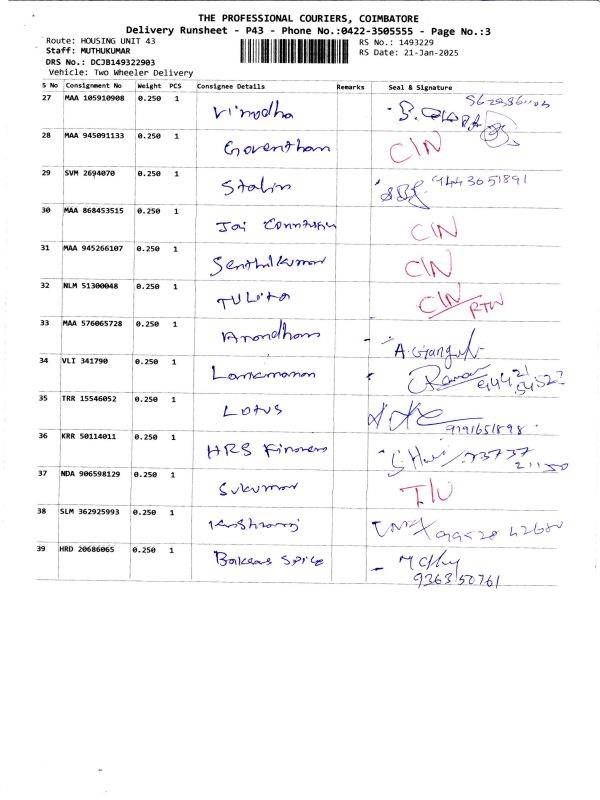 THE PROFESSIONAL COURIERS, COIMBATORE
Delivery Runsheet - P43 - Phone No.:0422-3505555 - Page No.:3
Route: HOUSING UNIT 43 RS No.: 1493229
Staff: MUTHUKUMAR RS Date: 21-Jan-2025
DRS No.: DCJB149322903
Vehicle: Two Wheeler Delivery
S No Consignment No Weight PCS Consignee Details Remarks Seal & Signature
27 MAA 105910908 0.250 1 Vinodha
28 MAA 945091133 0.250 1 Goventham CIN
29 SVM 2694070 0.250 1 Stalin 9443651891
30 MAA 868453515 0.250 1 Jai CIN
31 MAA 945266107 0.250 1 Senthilkumar CIN
32 NLM 51300048 0.250 1 TULita CIN RTN
33 MAA 576065728 0.250 1 Anandham
34 VLI 341790 0.250 1 Raman 94421 54522
35 TRR 15546052 0.250 1 LOTUS 9191651898
36 KRR 50114011 0.250 1 HRS 73737 21150
37 NDA 906598129 0.250 1 Sukumar I/U
38 SLM 362925993 0.250 1
39 HRD 20686065 0.250 1 Spice
9363150761